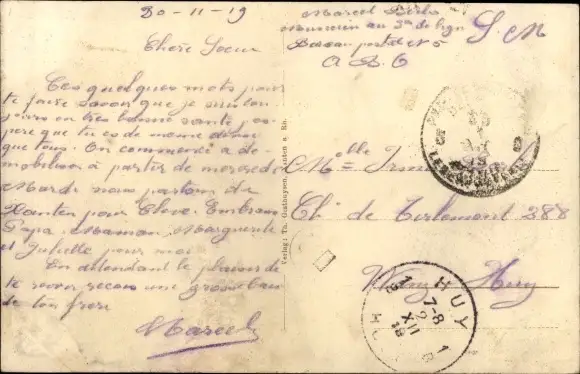 30-11-19
Chère Soeur
Ces quelques mots pour
te faire savoir que je suis tou
jours en très bonne santé j'es
père que tu es de même ainsi
que tous. On commence a dé
mobiliser à partir de mercredi
Mardi nous partons de
Xanten pour Clève. Embrasse
Papa, Maman, Marguerite
et Juliette pour moi
En attendant le plaisir de
te revoir reçois une grosse bai
de ton frère
Marcel
Verlag: Th. Gesthuysen, Xanten a. Rh.
Marcel
Musicien au 3me de lign
Bureau postal n° 5
A B O
S. M
Melle Irma
Ch. de Tirlemont 288
Huy
HUY
1 B
7-8
2
XII
19